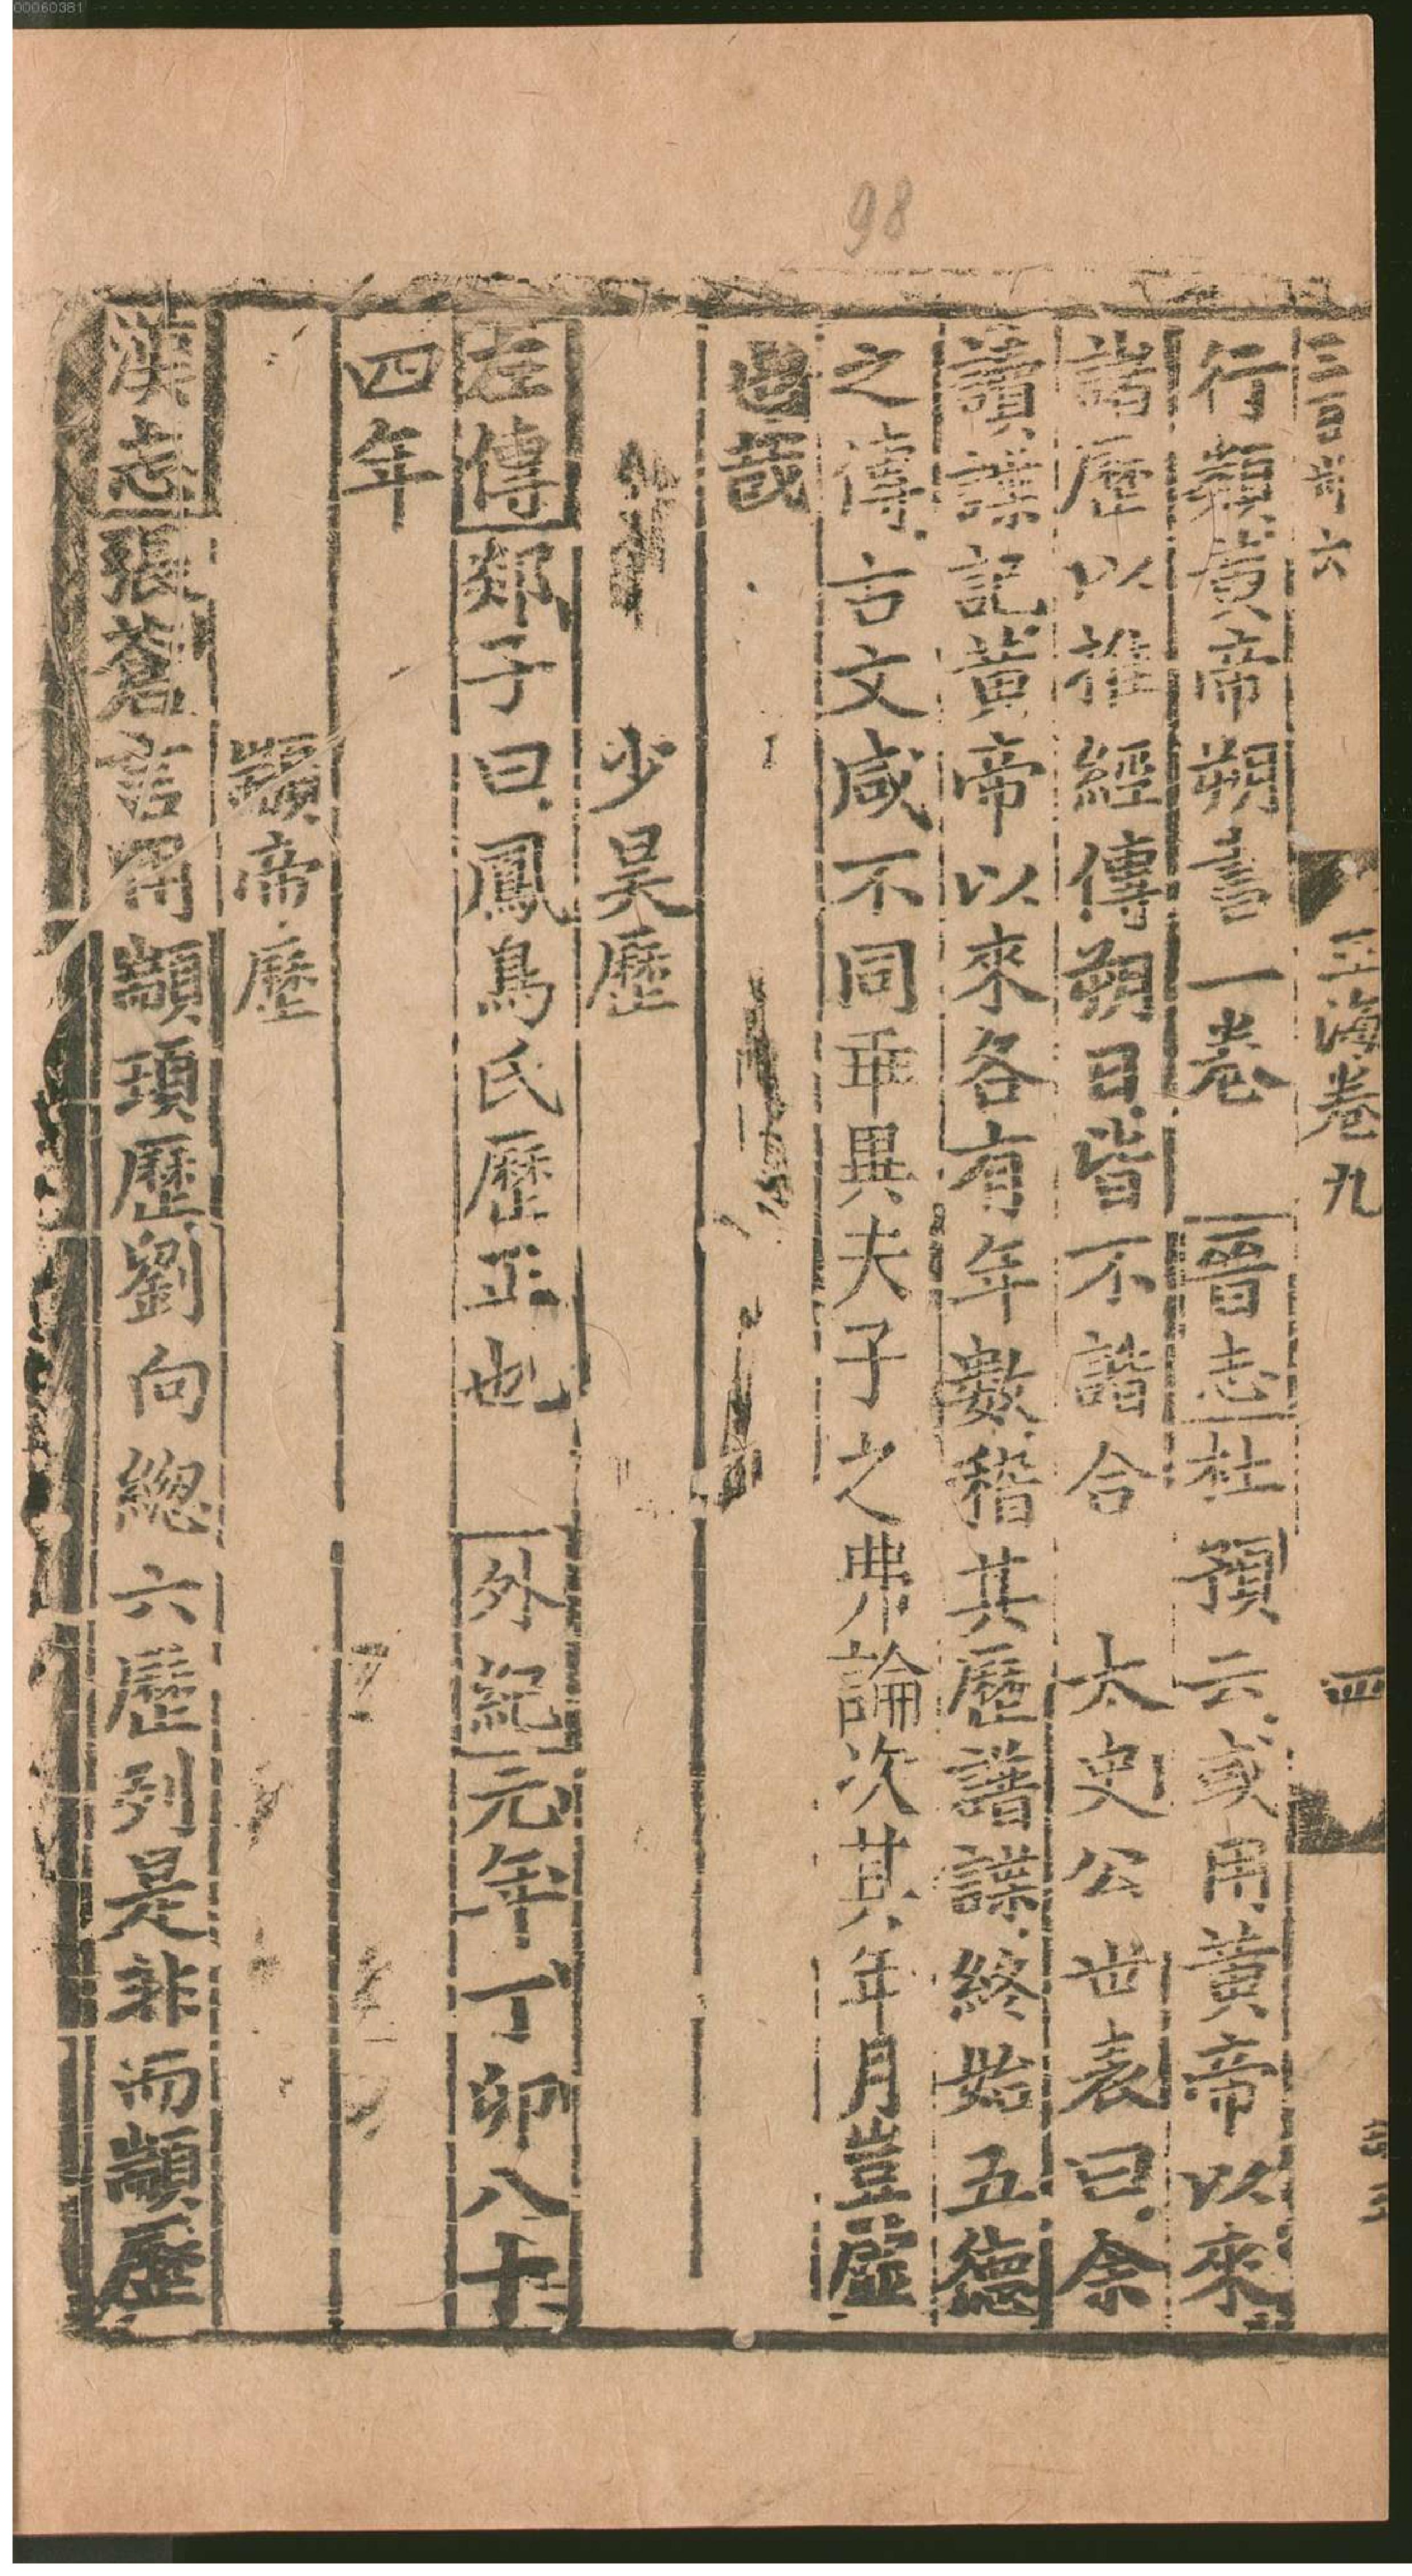 00060381
98
玉海卷九
四
行類黃帝朔書一卷 晉志杜預云或用黃帝以來
諸歷以推經傳朔日皆不諧合 太史公世表曰余
讀諜記黃帝以來各有年數稽其歷譜諜終始五德
之傳言文咸不同乖異夫子之弗論次其年月豈虛
也哉
少昊歷
左傳郯子曰鳳鳥氏歷正也 外紀元年丁卯八十
四年
顓帝歷
漢志張蒼言用顓頊歷劉向緫六歷列是非而顓歷